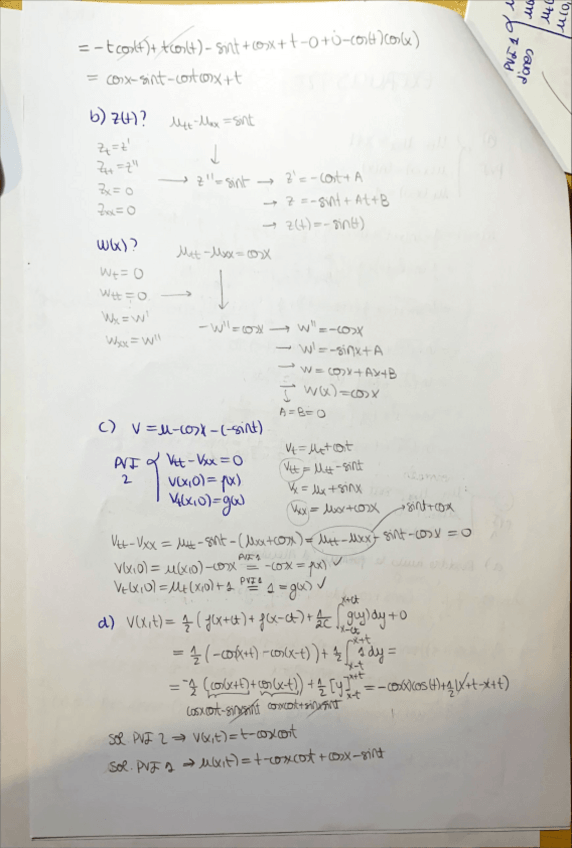 = -tcos(t) + tcos(t) - sint + cosx + t - 0 + 0 - cos(t)cos(x)
= cosx - sint - costcosx + t
b) z(t)? μtt - μxx = sint
zt = z'
ztt = z''
zx = 0
zxx = 0
→ z'' = sint → z' = -cost + A
→ z = -sint + At + B
→ z(t) = -sin(t)
w(x)? μtt - μxx = cosx
wt = 0
wtt = 0 →
wx = w'
wxx = w''
-w'' = cosx → w'' = -cosx
→ w' = -sinx + A
→ w = cosx + Ax + B
→ w(x) = cosx
↓
A = B = 0
c) v = μ - cosx - (-sint)
PVI 2 { vtt - vxx = 0
v(x,0) = f(x)
vt(x,0) = g(x)
vt = μt + cost
vtt = μtt - sint
vx = μx + sinx
vxx = μxx + cosx → sint + cosx
vtt - vxx = μtt - sint - (μxx + cosx) = μtt - μxx - sint - cosx = 0
v(x,0) = μ(x,0) - cosx =PVI 1 -cosx = f(x) ✓
vt(x,0) = μt(x,0) + 1 =PVI 1 1 = g(x) ✓
d) v(x,t) = 1/2 (f(x+ct) + f(x-ct)) + 1/2c ∫x-ct^x+ct g(y)dy + 0
= 1/2 (-cos(x+t) - cos(x-t)) + 1/2 ∫x-t^x+t 1 dy =
= -1/2 (cos(x+t) + cos(x-t)) + 1/2 [y]x-t^x+t = -cos(x)cos(t) + 1/2 (x+t-x+t)
cosxcost - sinxsint cosxcost + sinxsint
sol PVI 2 ⇒ v(x,t) = t - cosxcost
sol. PVI 1 ⇒ μ(x,t) = t - cosxcost + cosx - sint
PVI 1 {